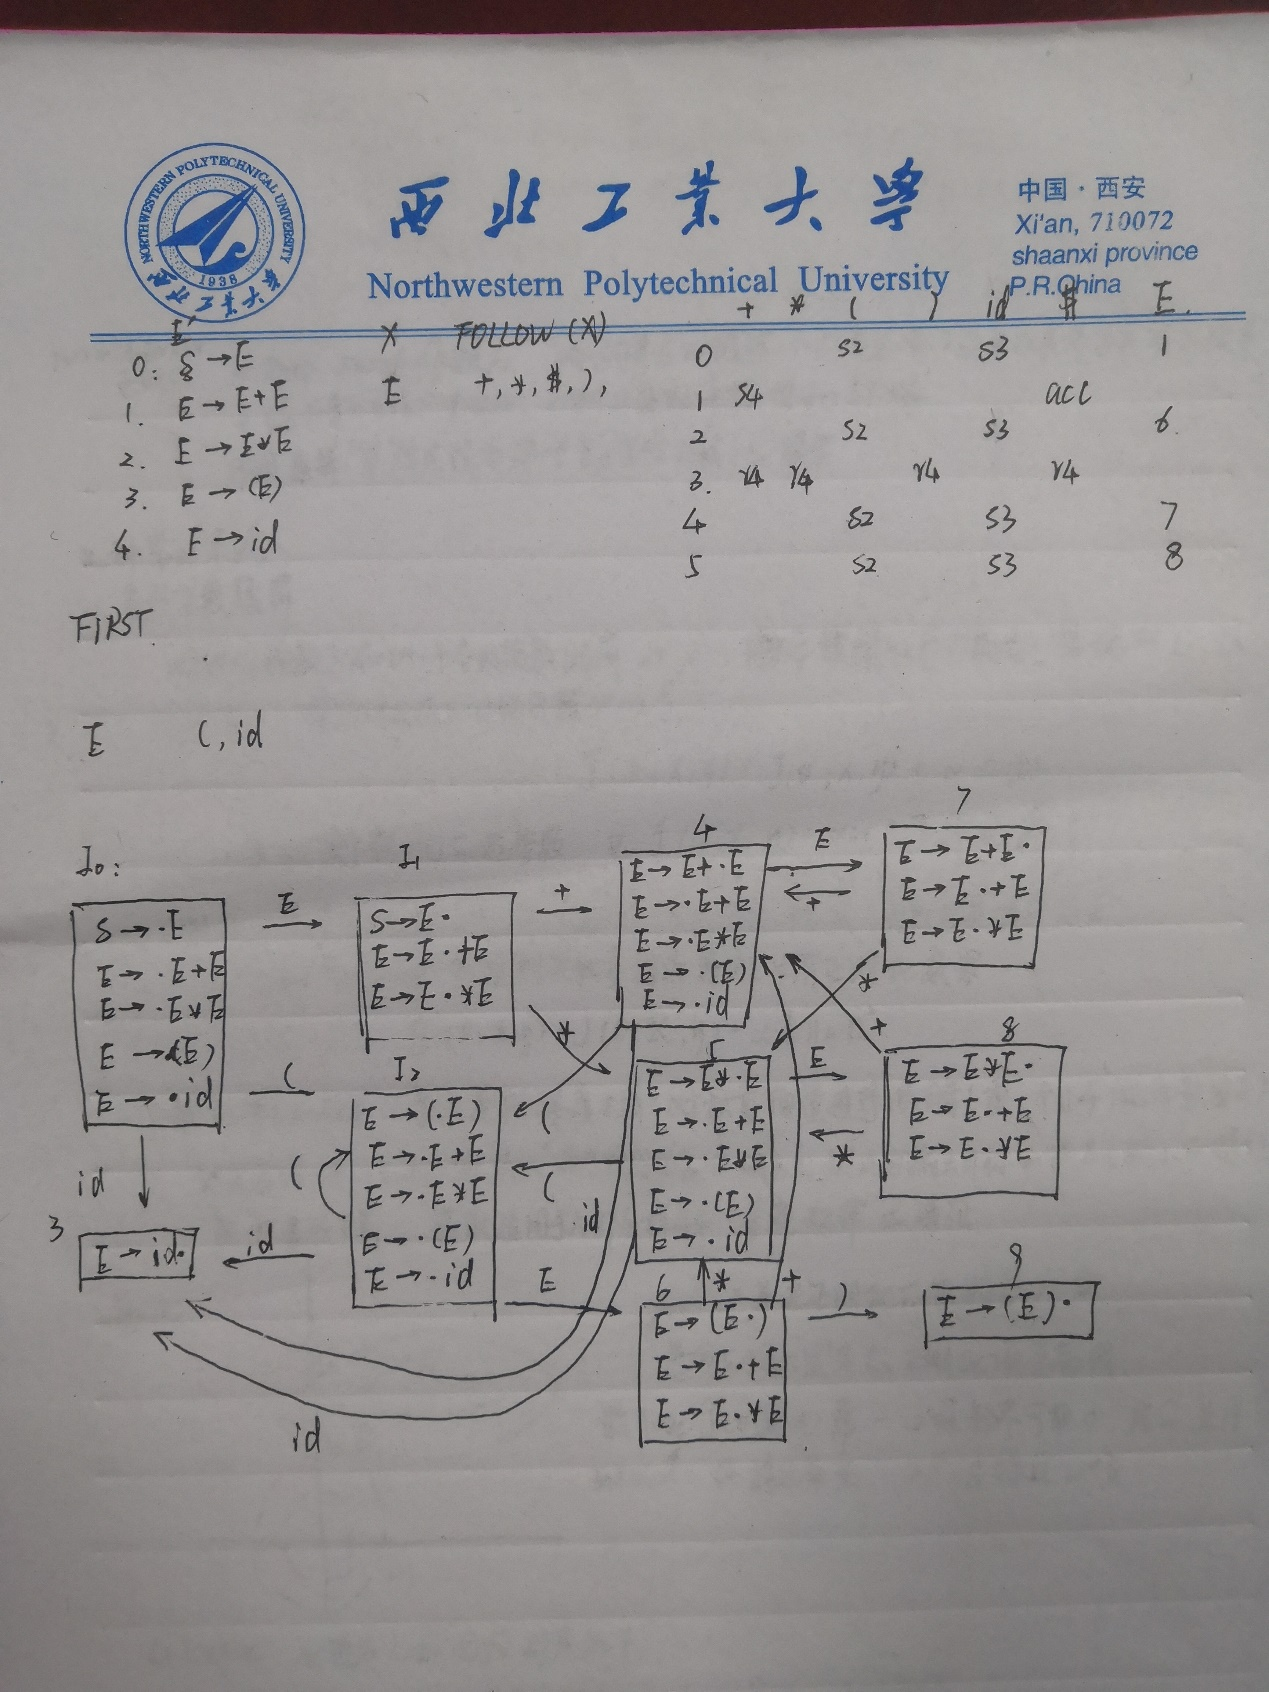 NORTHWESTERN POLYTECHNICAL UNIVERSITY
1938
西北工业大学
西北工业大学
Northwestern Polytechnical University
中国·西安
Xi'an, 710072
shaanxi province
P.R.China
+ * ( ) id $ E
E'
0: S → E
1. E → E+E
2. E → E*E
3. E → (E)
4. E → id
X FOLLOW (X)
E +, *, $, ),
0 s2 s3 1
1 s4 acc
2 s2 s3 6
3. r4 r4 r4 r4
4 s2 s3 7
5 s2 s3 8
FIRST
E (, id
I0:
S → ·E
E → ·E+E
E → ·E*E
E → ·(E)
E → ·id
E
(
id
I1
S → E·
E → E·+E
E → E·*E
+
*
I2
E → (·E)
E → ·E+E
E → ·E*E
E → ·(E)
E → ·id
(
id
E
3
E → id·
4
E → E+·E
E → ·E+E
E → ·E*E
E → ·(E)
E → ·id
E
(
id
5
E → E*·E
E → ·E+E
E → ·E*E
E → ·(E)
E → ·id
E
(
id
6
E → (E·)
E → E·+E
E → E·*E
*
+
)
7
E → E+E·
E → E·+E
E → E·*E
+
*
8
E → E*E·
E → E·+E
E → E·*E
+
*
9
E → (E)·